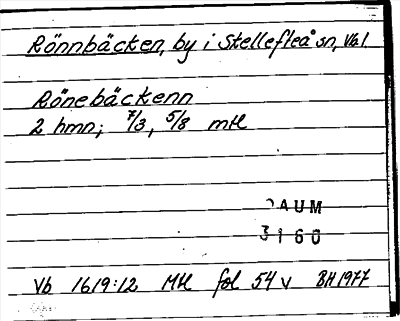 Rönnbäcken, by i Skellefteå sn, Vbl.
Rönebäckenn
2 hmn; 7/3, 5/8 mtl
DAUM
3160
Vb 1619:12 Mtl fol 54 v BH 1977